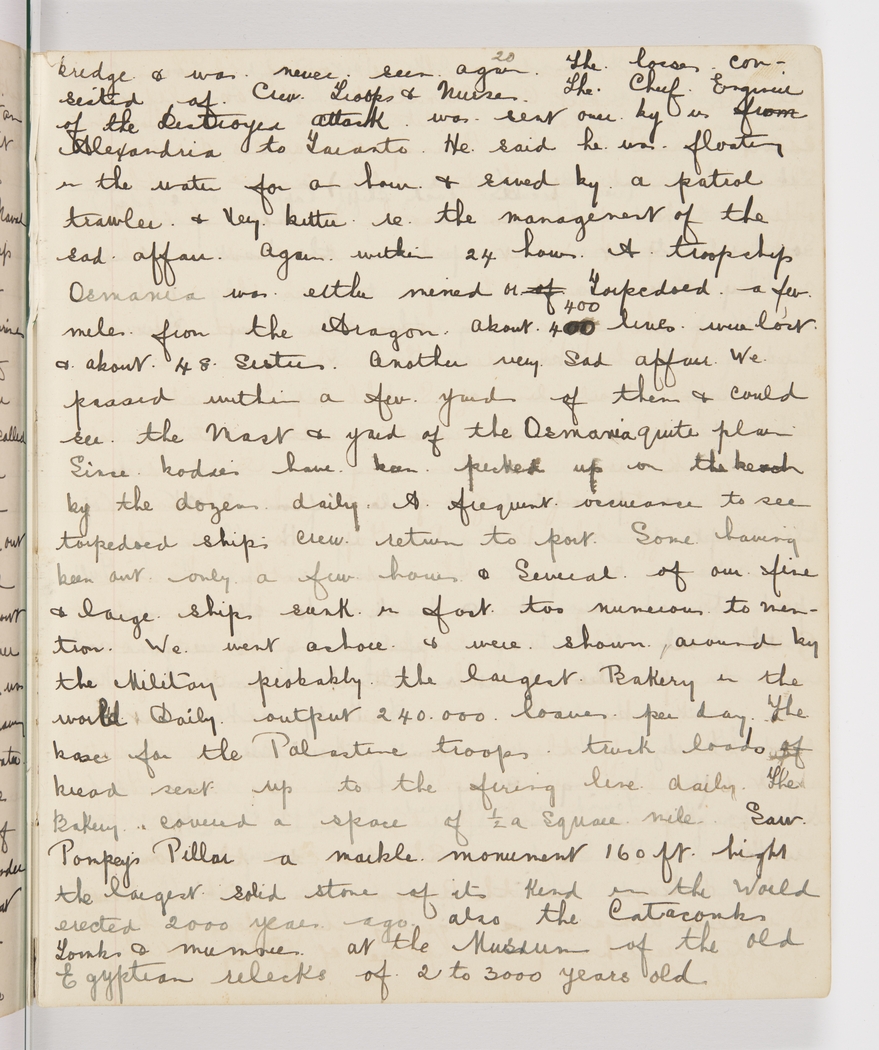 20
bridge & was never seen again. The losses con-
sisted of. Crew. Troops & Nurses. The. Chief. Engineer
of the Destroyer attack was sent over by us from
Alexandria to Taranto. He. said he was. floating
in the water for an hour. & saved by. a patrol
trawler. & Very. bitter. re. the management of the
sad. affair. Again. within 24 hours. A. troopship
Osmania was either mined or of Torpedoed. a few.
400
miles. from the Aragon. About. 400 lives. were lost.
& about. 48. Sisters. Another very. Sad affair. We.
passed within a few. yards of them & could
see. the Mast & yard of the Osmania quite plain
Since. bodies have been picked up on the beach
by the dozens daily. A. frequent. occurance to see
torpedoed ships crew. return to port. Some having
been out. only. a few hours. & Several of our fine
& large. ships sunk in fact. too numerous to men-
tion. We. went ashore. & were. shown. around by
the Military probably. the largest. Bakery in the
world. Daily. output 240.000. loaves. per day. The
base for the Palastine troops. truck loads of
bread sent up to the firing line daily. The
Bakery. covered a space of ½ a Square mile. Saw.
Pompeys Pillar a marble. monument 160 ft. hight
the largest. solid stone of its Kind in the World
erected 2000 years ago. also the Catacombs
Tombs & mummies. at the Musium of the old
Egyptian relecks of. 2 to 3000 years old